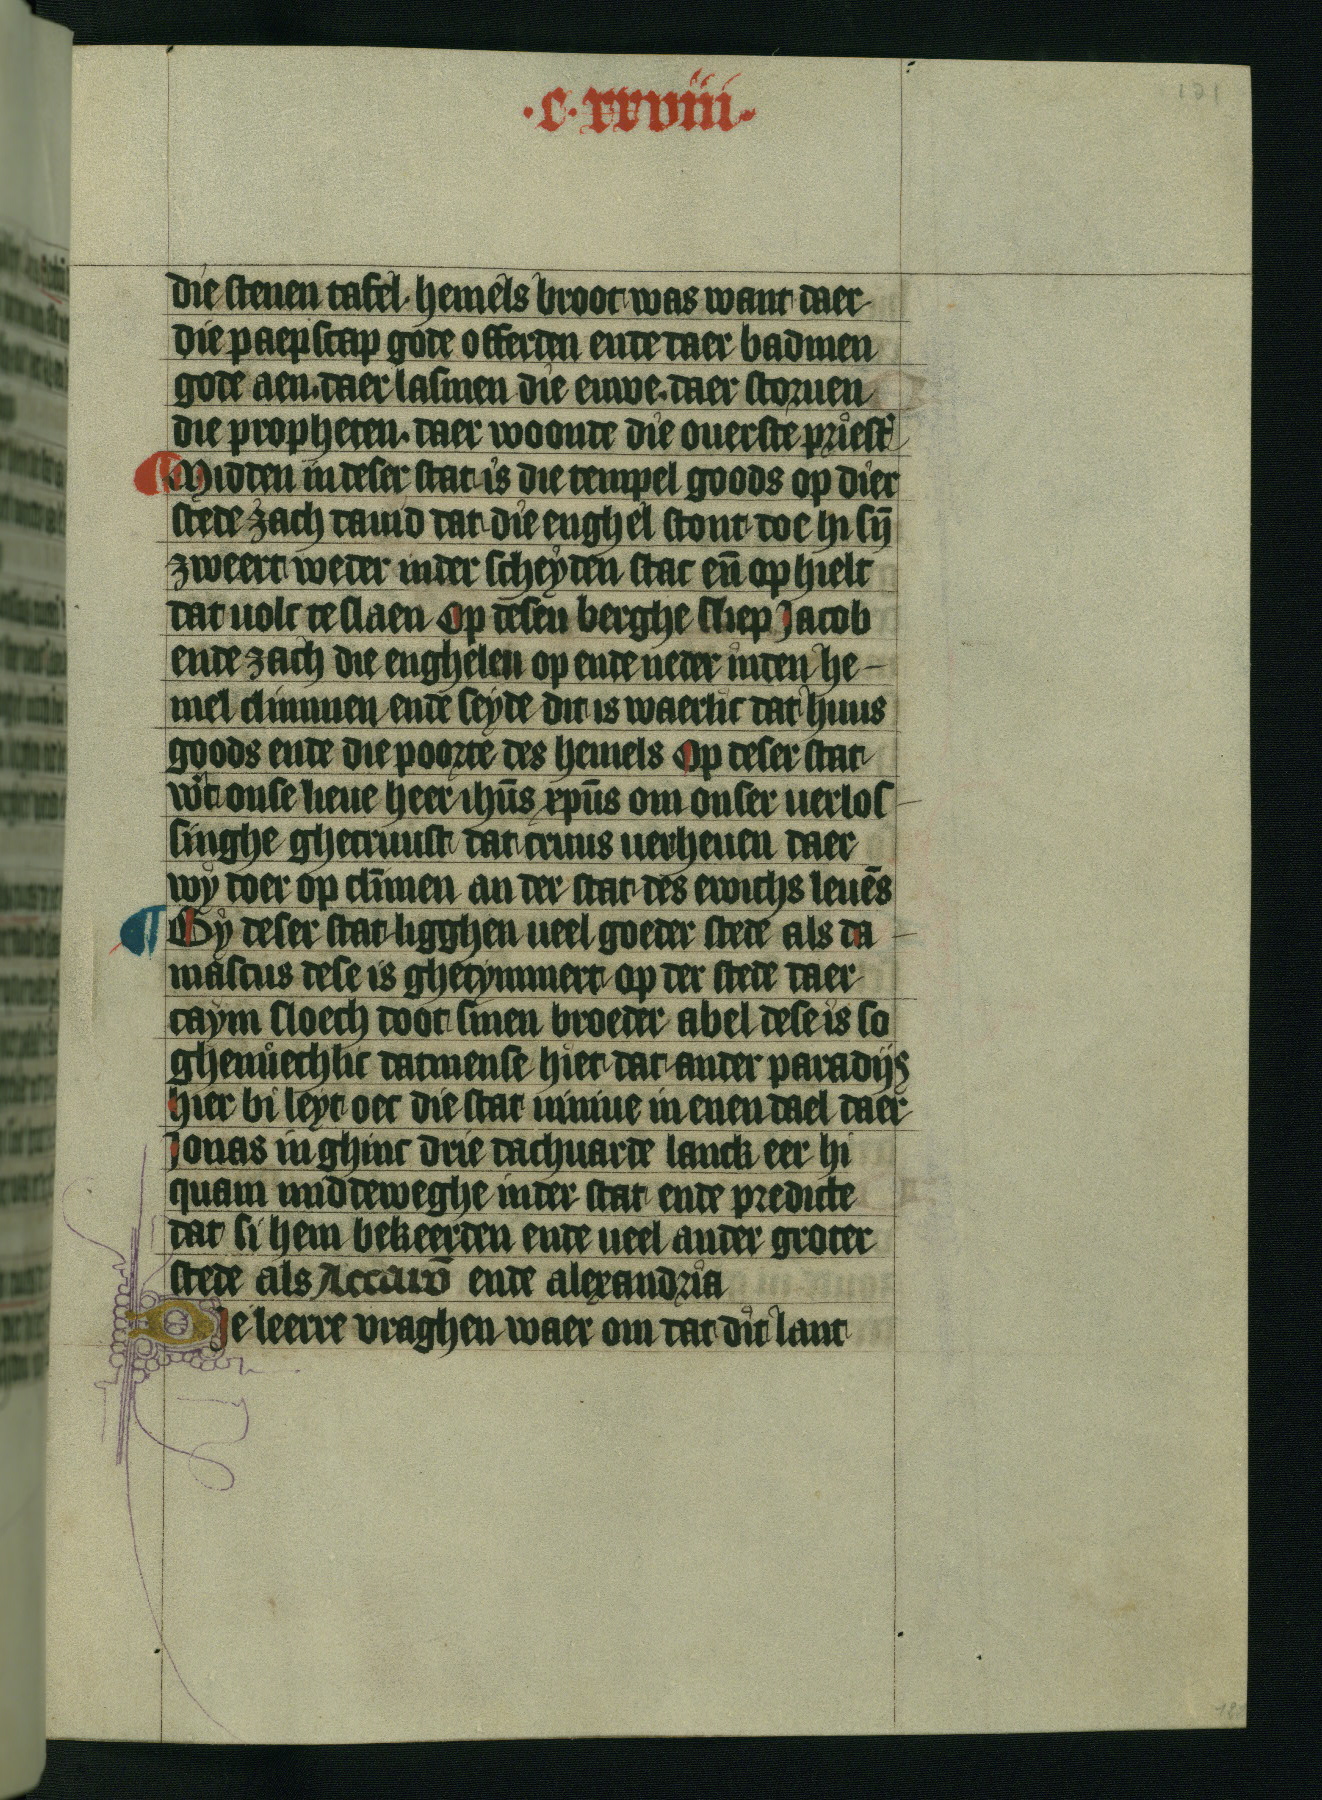 ·c·xxviii·
131
die stenen tafel· hemels broot was want daer
die paepscap gode offerden ende daer badmen
gode aen· daer lasmen die euwe· daer storuen
die propheten· daer woonde die ouerste priest'
¶ Midden in deser stat is die tempel goods op dier
stede zach dauid dat die enghel stont doe hi sijn̄
zweert weder inder scheyden stac en̄ op hielt
dat uolc te slaen Op desen berghe sliep Jacob
ende zach die enghelen op ende neder inden he-
mel climmen ende seyde dit is waerlic dat huus
goods ende die poorte des hemels Op deser stat
wt onse lieue heer ihūs xpūs om onser uerlos
singhe ghecruust dat cruus uerheuen daer
wy doer op clīmen an der stat des ewichs leuēs
¶ By deser stat ligghen ueel goeder stede als da
mascus dese is ghetymmert op der stede daer
caym sloech doot sinen broeder abel dese is so
ghenuechlic datmense hiet dat ander paradijs
hier bi leyt oec die stat niniue in enen dael daer
Jonas in ghinc drie dachuarde lanck eer hi
quam middeweghe inder stat ende predicte
dat si hem bekeerden ende ueel ander groter
stede als Accaro᷒ ende alexandria
Die leerre vraghen waer om dat dit lant